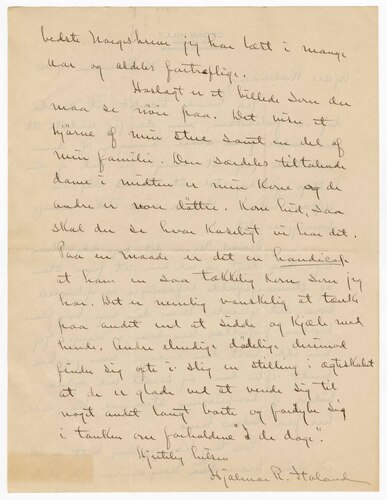 bedste Norgeskrim jeg har læst i mange
aar og aldeles fortræffelige.
Havlagt er et billede som du
maa se nøie paa. Det viser et
hjørne af min stue samt en del af
min familie. Den særdeles tiltalende
dame i midten er min Kone og de
andre er vore døttre. Kom hid, saa
skal du se hvor koseligt vi har det.
Paa en maade er det en handicap
at have en saa tækkelig Kone som jeg
har. Det er nemlig vanskelig at tænke
paa andet end at sidde og kjæle med
hende. Andre elendige dødelige derimod
finder sig ofte i slig en stelling i ægteskabet
at de er glade ved at vende sig til
noget andet langt borte og fordybe sig
i tanken om forholdene "i de dage".
Hjertelig hilsen
Hjalmar R. Holand